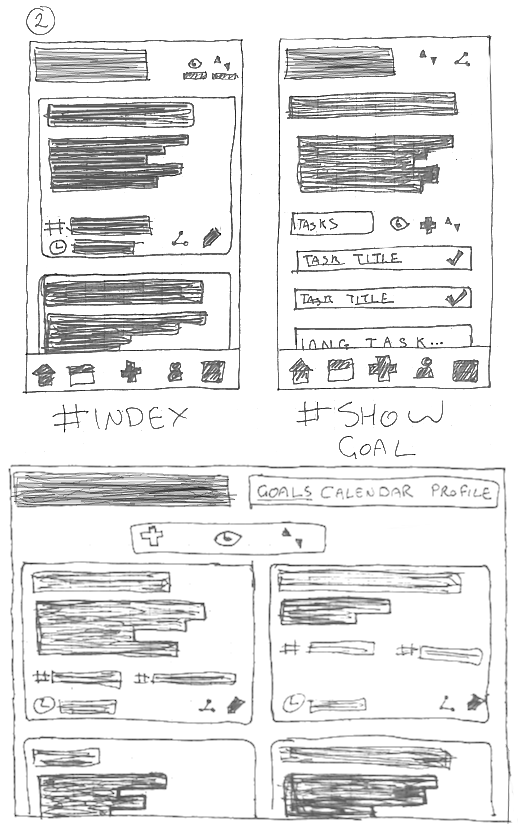 2
TASKS
TASK TITLE
TASK TITLE
LONG TASK...
#INDEX
#SHOW
GOAL
GOALS CALENDAR PROFILE
#
#
#
#
#